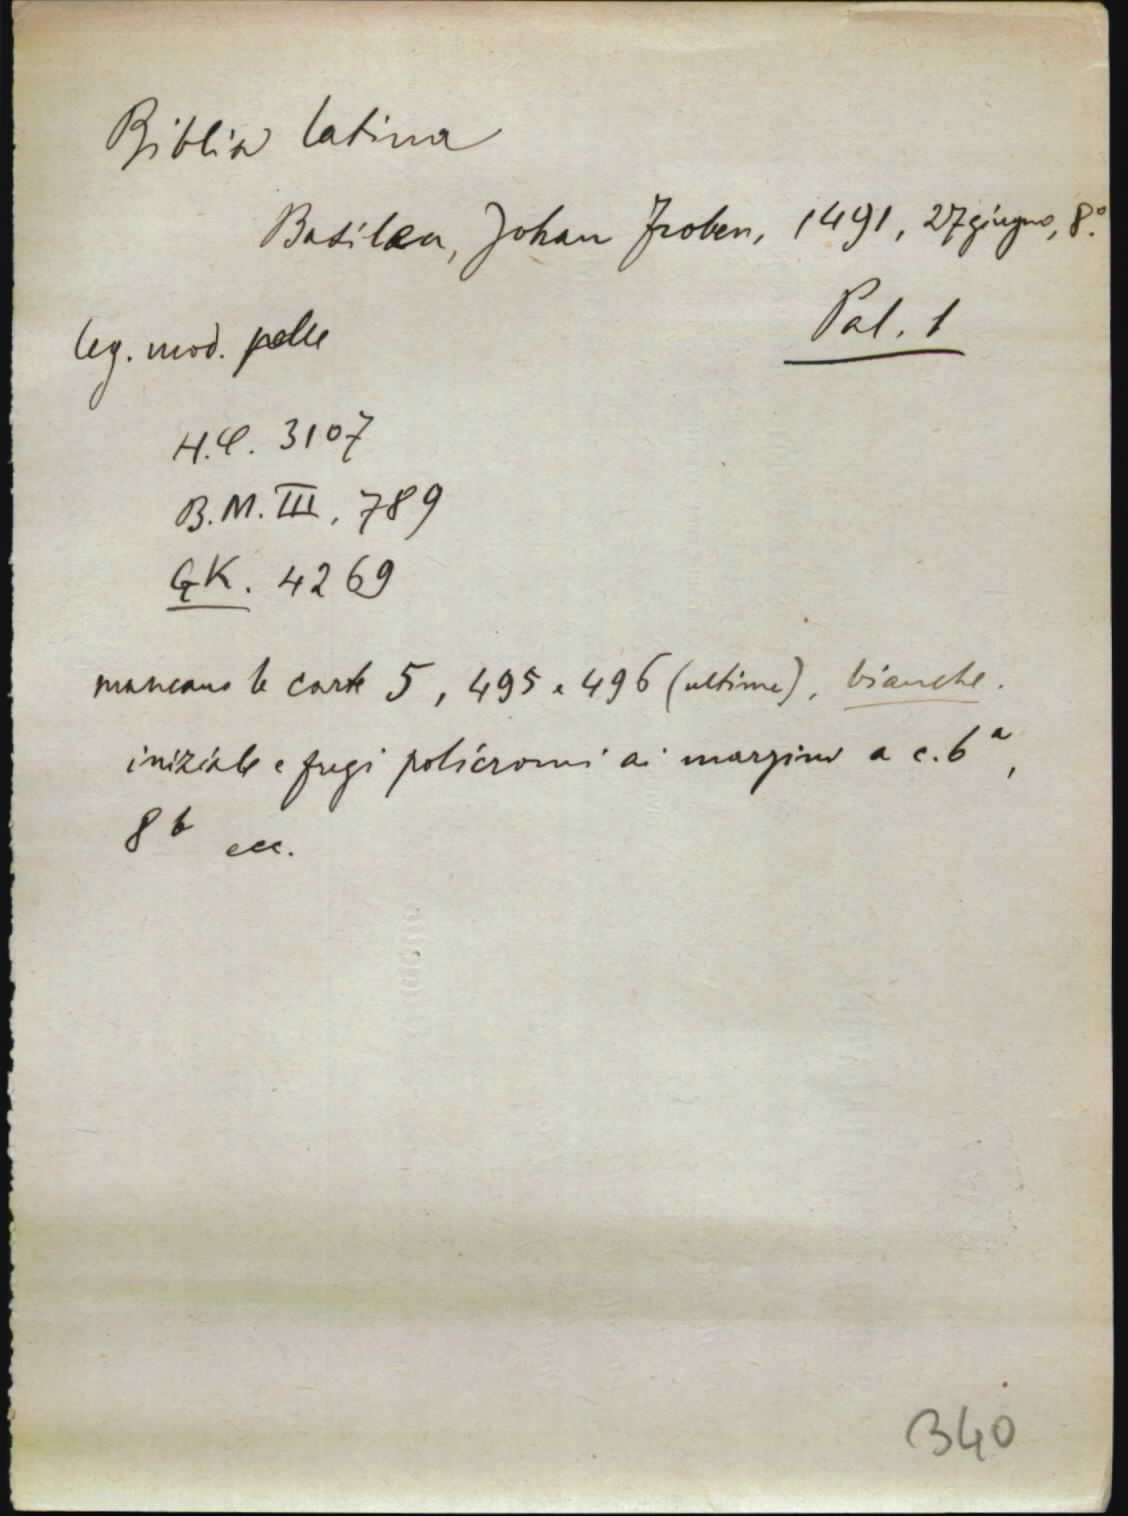 Biblia latina
Basilea, Johan Froben, 1491, 27 giugno, 8.°
Pal. 1
leg. mod. pelle
H.C. 3107
B.M. III, 789
GK. 4269
mancano le carte 5, 495 e 496 (ultime), bianche.
iniziale e fregi policromi ai margini a c. 6a,
8b ecc.
340